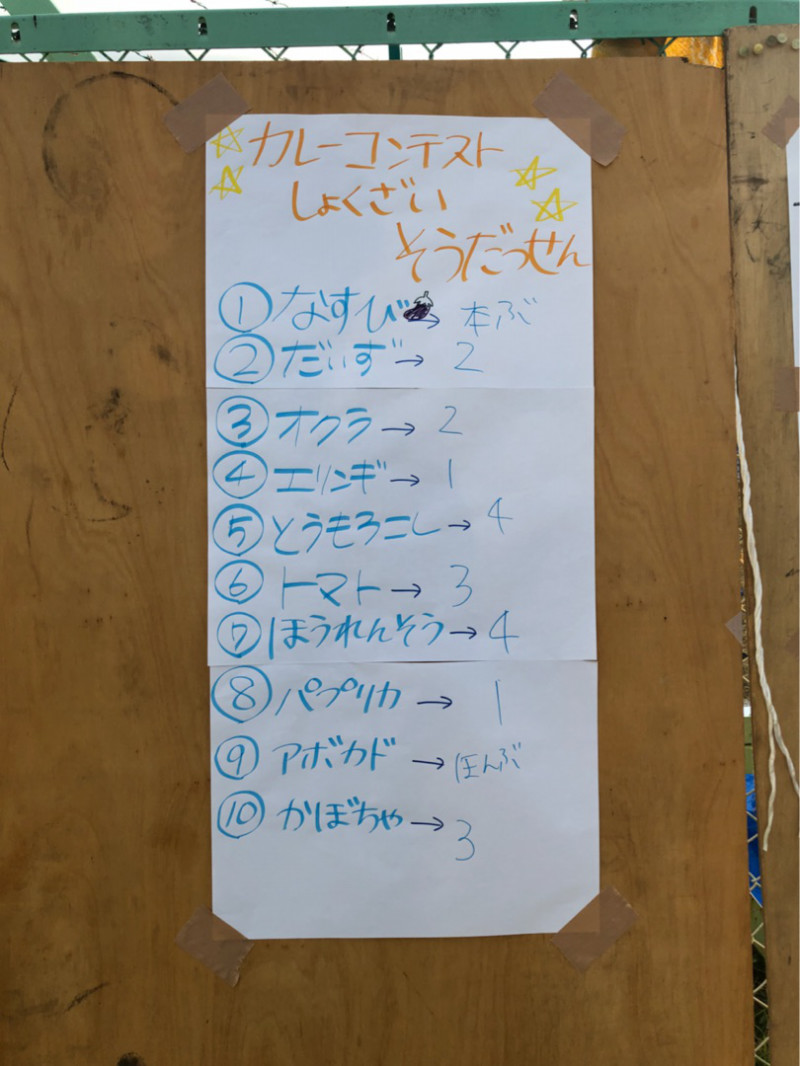 カレーコンテスト
しょくざい
そうだつせん
① なすび → 本ぶ
② だいず → 2
③ オクラ → 2
④ エリンギ → 1
⑤ とうもろこし → 4
⑥ トマト → 3
⑦ ほうれんそう → 4
⑧ パプリカ → 1
⑨ アボカド → ほんぶ
⑩ かぼちゃ → 3